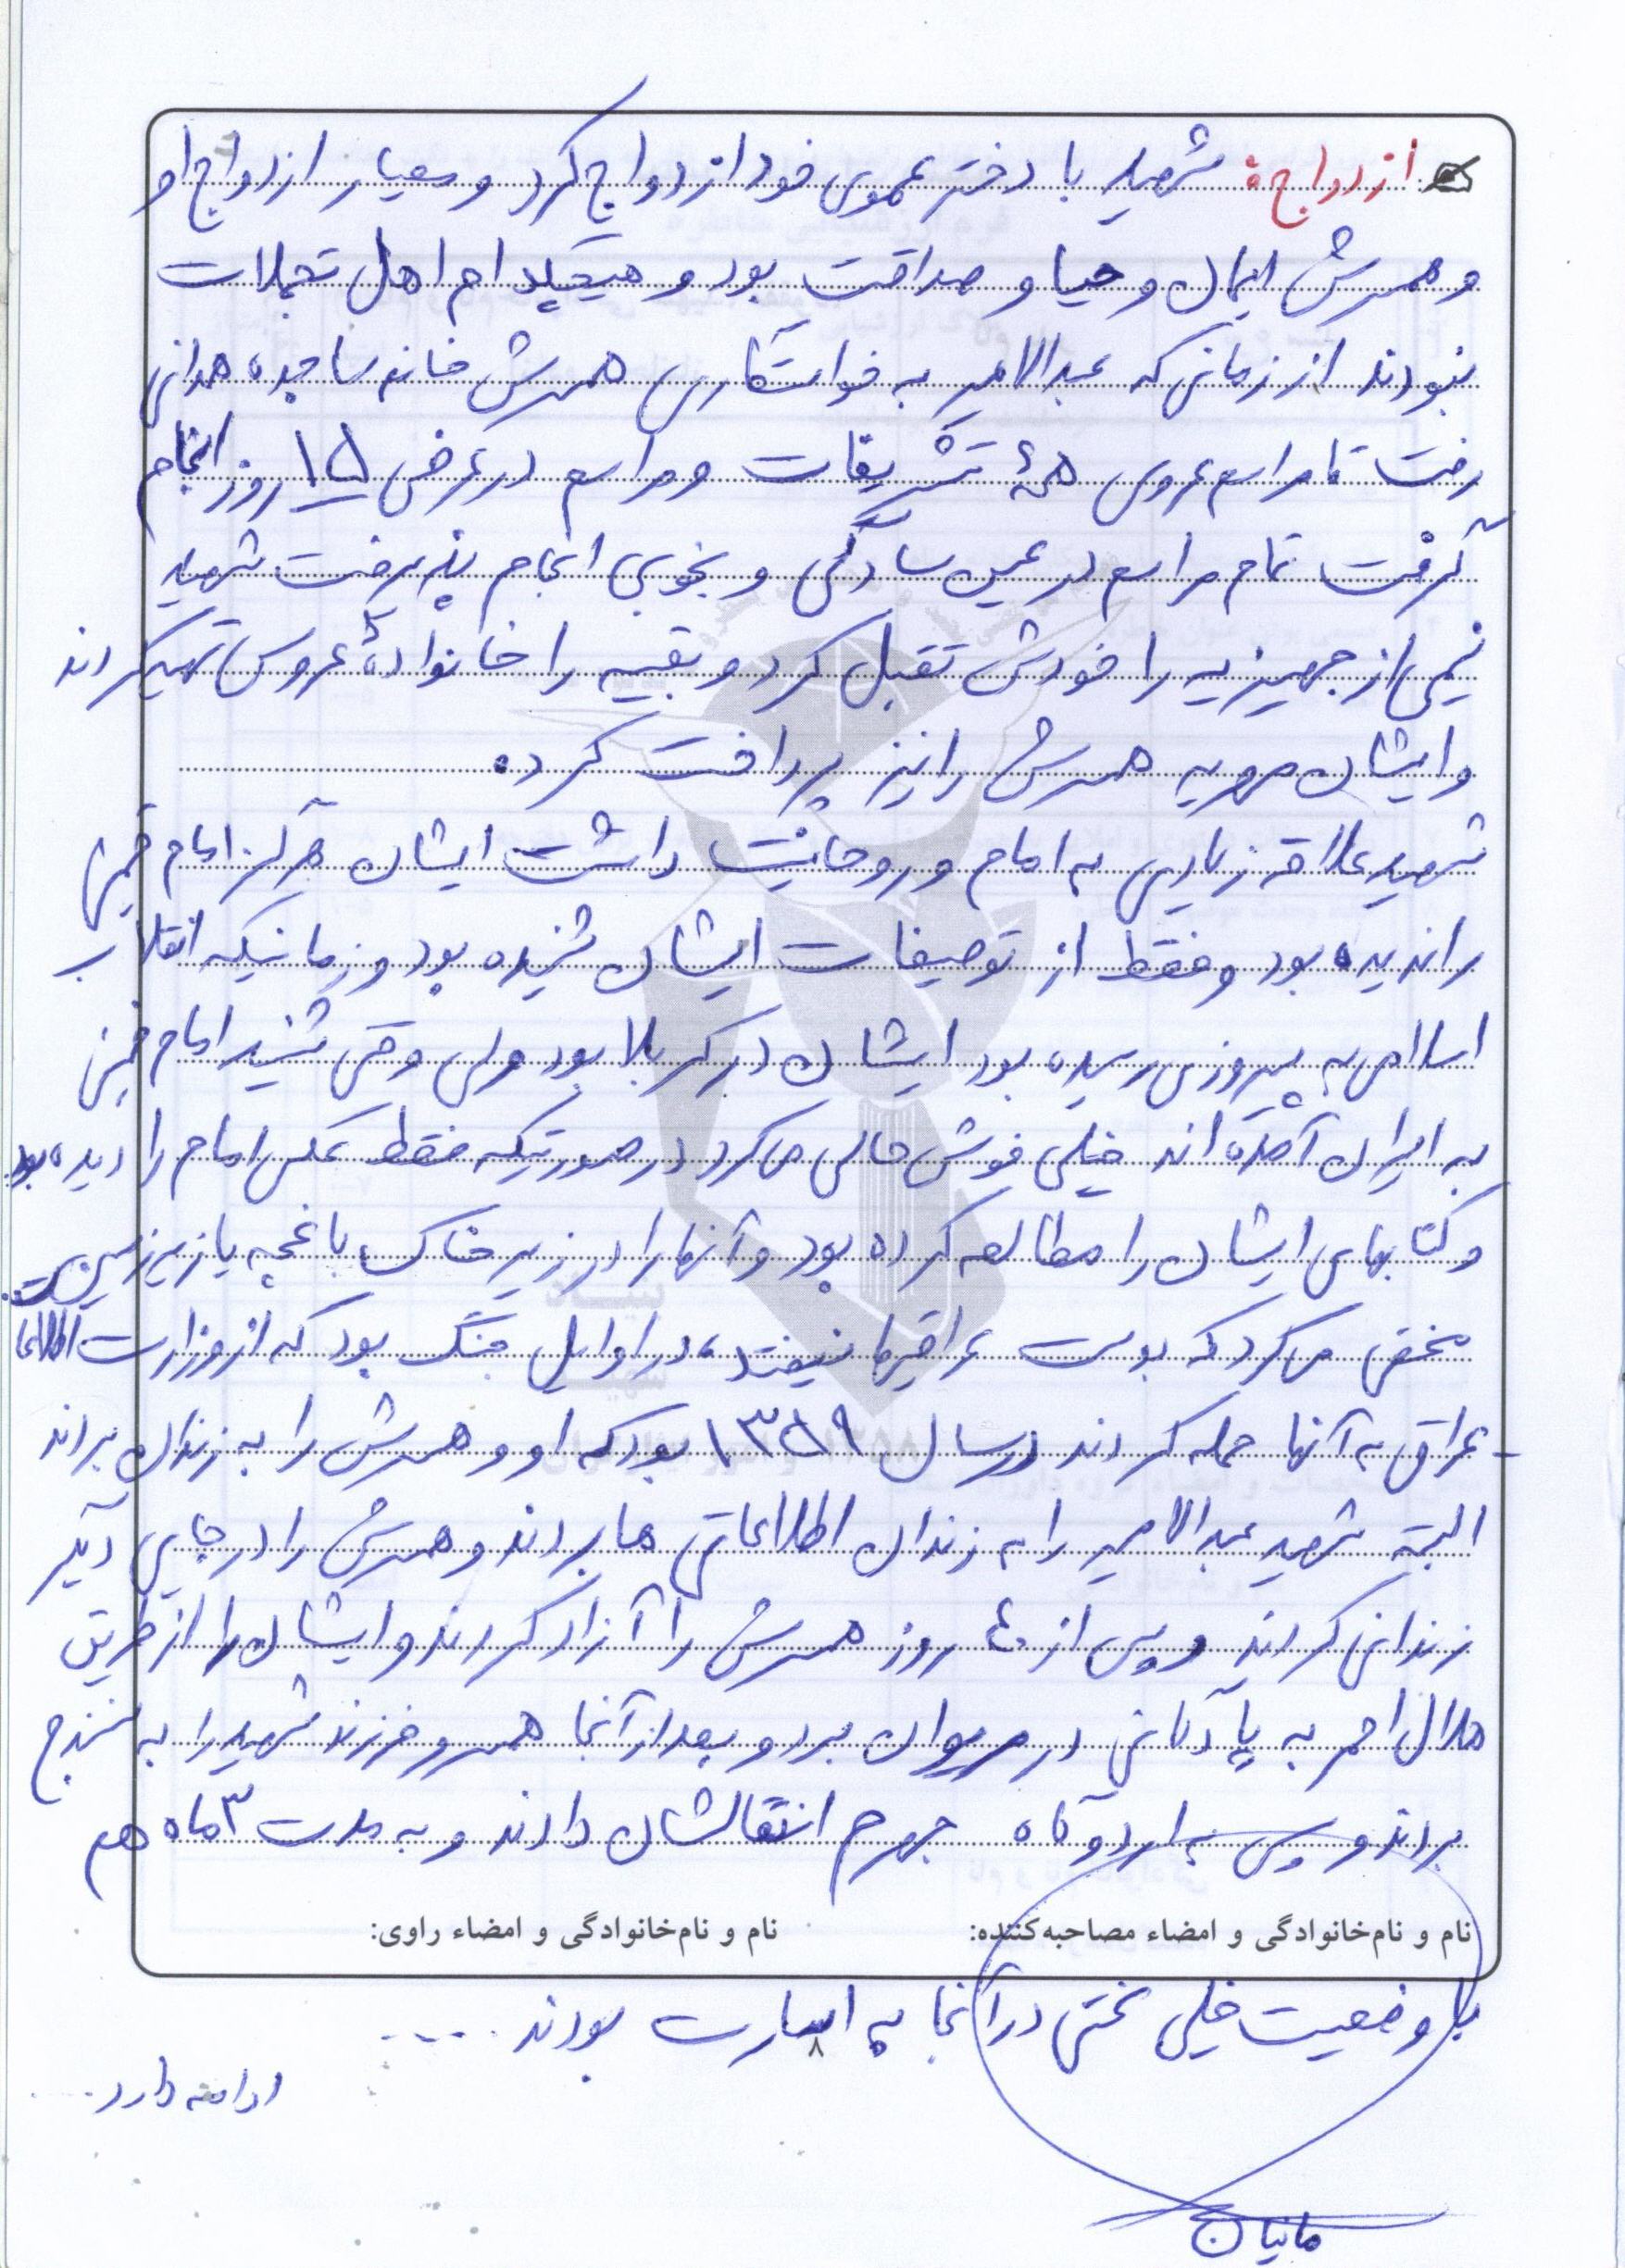 ازدواج: شهید با دختر عموی خود ازدواج کرد و معیار ازدواج او
و همسرش ایمان و حیا و صداقت بود و هیچکدام اهل تجملات
نبودند از زمانی که عبدالامیر به خواستگاری همسرش خانم ساجده همدانی
رفت تا مراسم عروسی همهٔ تشریفات و مراسم در عرض ۱۵ روز انجام
گرفت تمام مراسم در عین سادگی و بخوبی انجام پذیرفت شهید
نیمی از جهیزیه را خودش تقبل کرد و بقییه را خانوادهٔ عروس تهیه کردند
و ایشان مهریه همسرش را نیز پرداخت کرده.
شهید علاقه زیادی به امام و روحانیت داشت ایشان هرگز امام خمینی
را ندیده بود و فقط از توصیفات ایشان شنیده بود و زمانیکه انقلاب
اسلامی به پیروزی رسیده بود ایشان در کربلا بود ولی وقتی شنید امام خمینی
به ایران آمده اند خیلی خوش حالی می کرد در صورتیکه فقط عکس امام را دیده بود.
و کتابهای ایشان را مطالعه کرده بود و آنها را در زیر خاک باغچه یا زیرزمین
مخفی می کرد که بدست عراقیها نیفتد، در اوایل جنگ بود که از وزارت اطلاعات
عراق به آنها حمله کردند در سال ۱۳۵۹ بود که او و همسرش را به زندان بردند
البته شهید عبدالامیر را به زندان اطلاعاتی ها بردند و همسرش را در جایی دیگر
زندانی کردند و پس از ٤۰ روز همسرش را آزاد کردند و ایشان را از طریق
هلال احمر به پادگانی در مریوان برد و بعد از آنجا همسر و فرزند شهید را به سنندج
بردند و سپس به اردوگاه جهرم انتقالشان دادند و به مدت ۳ ماه هم
نام و نام‌خانوادگی و امضاء مصاحبه‌کننده: نام و نام‌خانوادگی و امضاء راوی:
با وضعیت خیلی سختی در آنجا به اسارت بودند ....
۸
ادامه دارد....